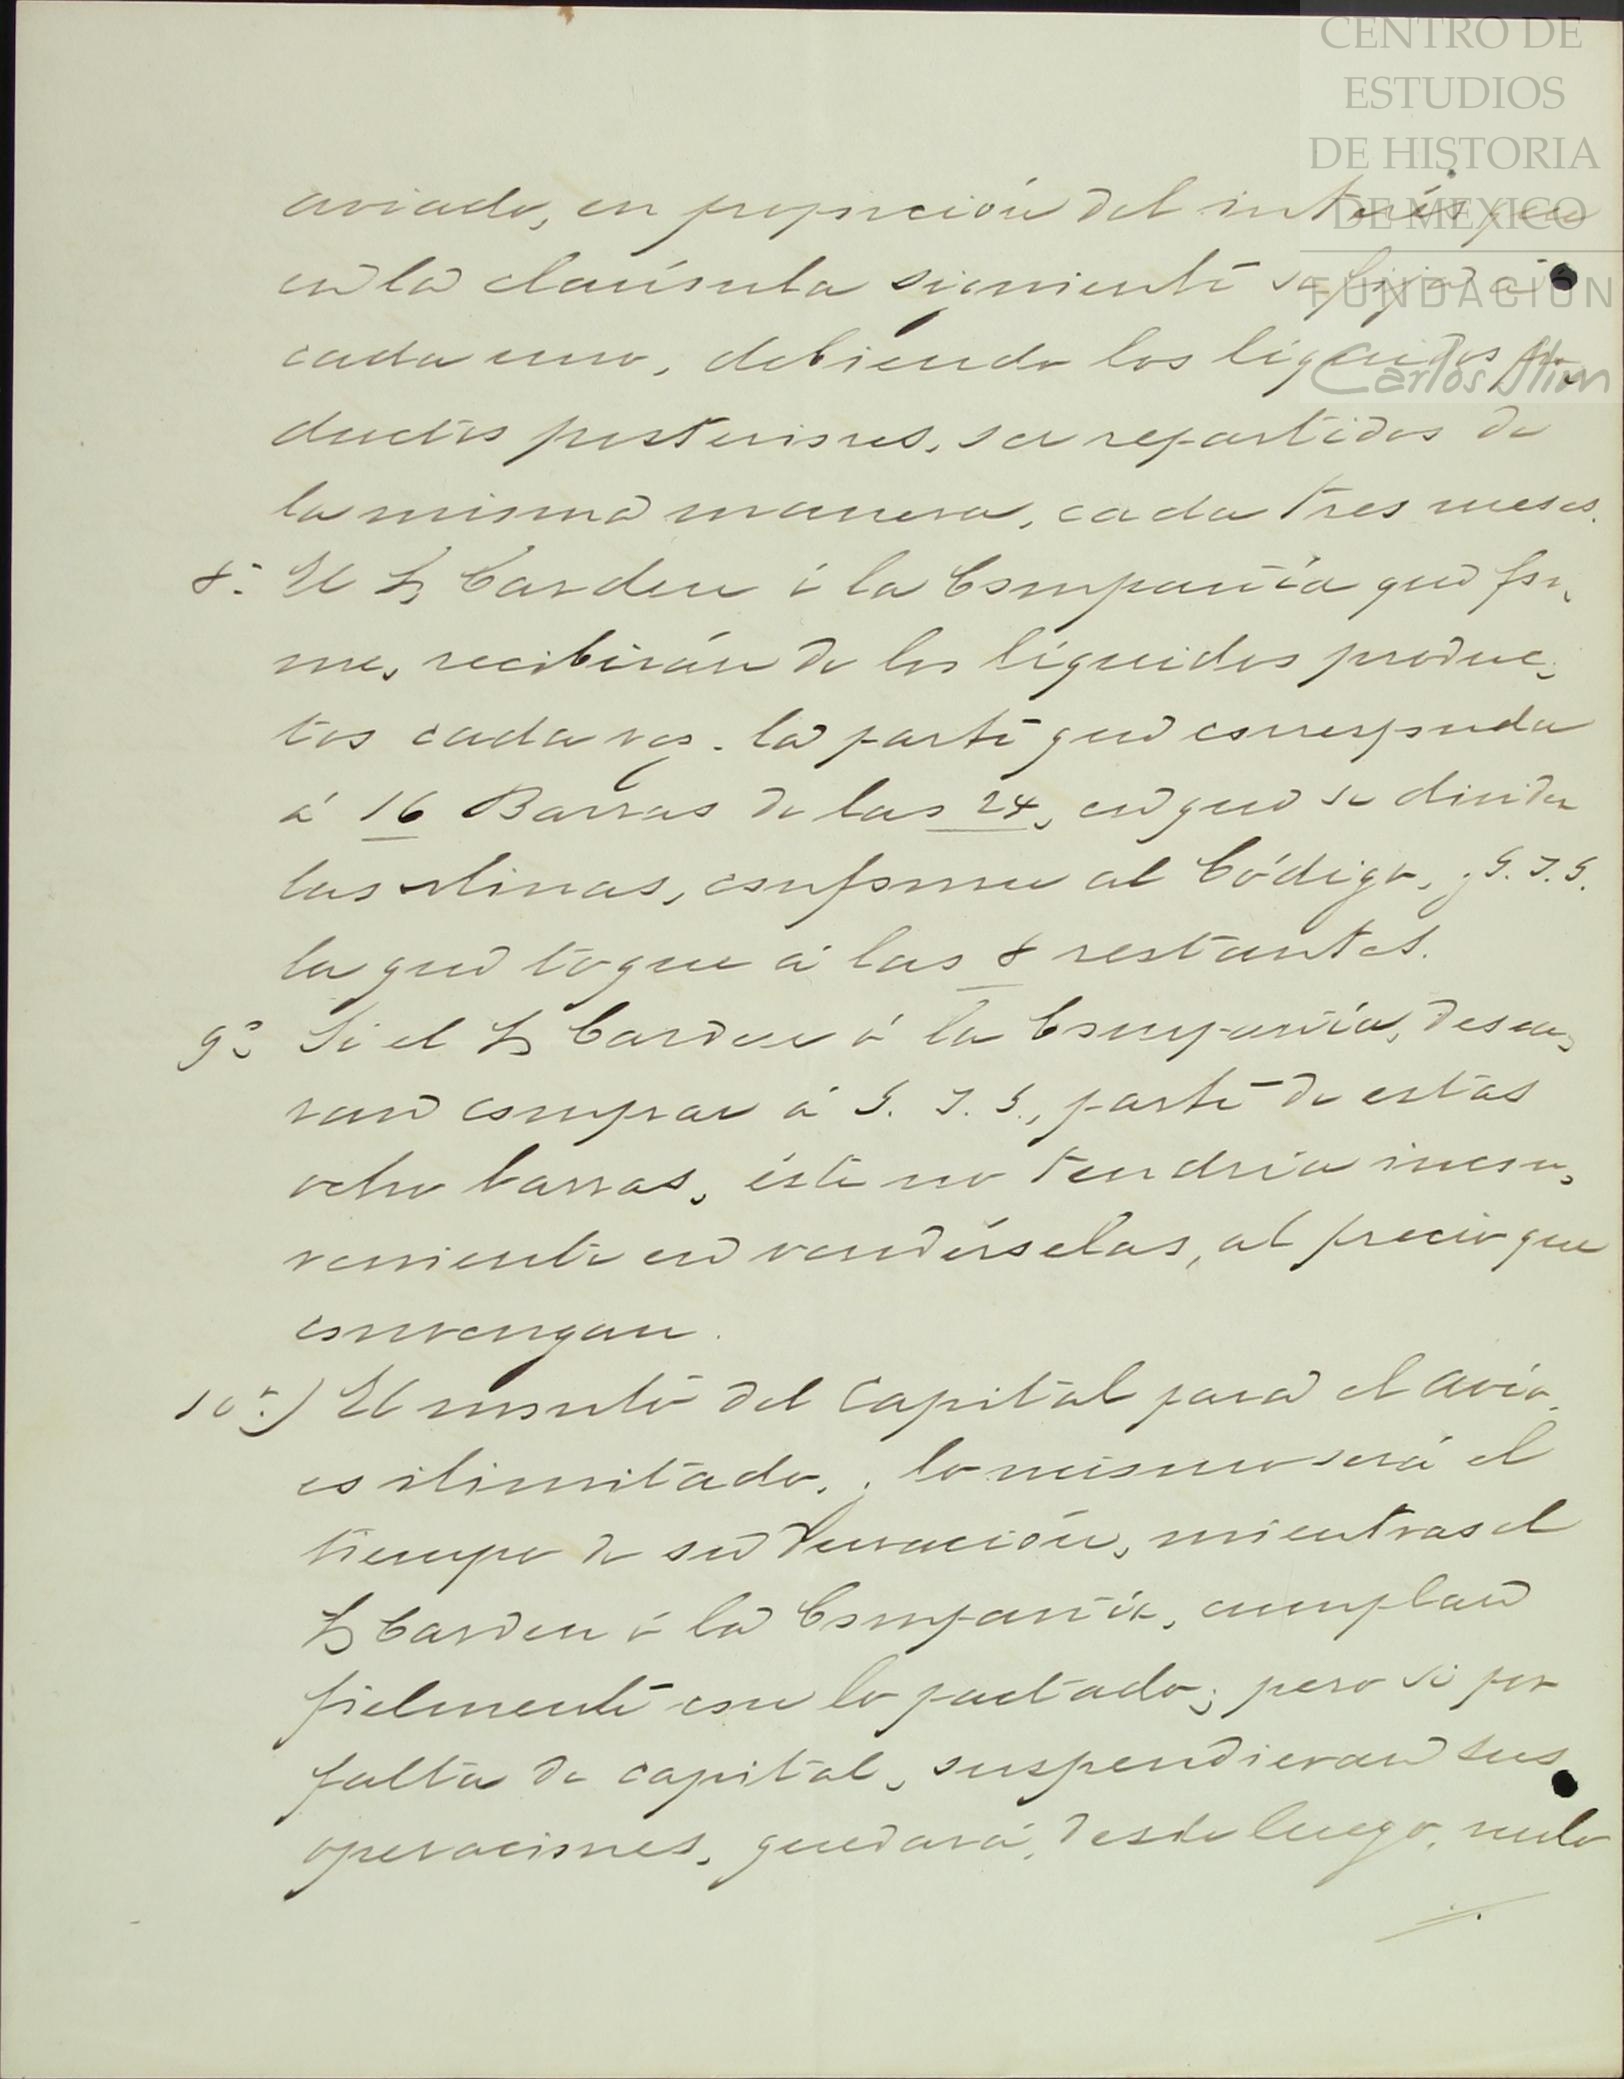 CENTRO DE
ESTUDIOS
DE HISTORIA
DE MEXICO
FUNDACIÓN
Carlos Slim
aviado, en proporción del interés que
en la claúsula siguiente se fija á
cada uno, debiendo los líquidos pro-
ductos posteriores, ser repartidos de
la misma manera, cada tres meses.
8ª El Sr Carden ó la Compañía que for-
me, recibirán de los líquidos produc-
tos cada vez. la parte que corresponda
á 16 Barras de las 24, en que se dividen
las Minas, conforme al Código, y S. I. S.
la que toque á las 8 restantes.
9ª Si el Sr Carden ó la Compañía, desea-
ran comprar á S. I. S., parte de estas
ocho barras, éste no tendría incon-
veniente en vendérselas, al precio que
convengan.
10ª) El monto del Capital para el avío,
es ilimitado, y lo mismo será el
tiempo de su duración, mientras el
Sr Carden ó la Compañía, cumplan
fielmente con lo pactado; pero si por
falta de capital, suspendieran sus
operaciones, quedará, desde luego, nulo